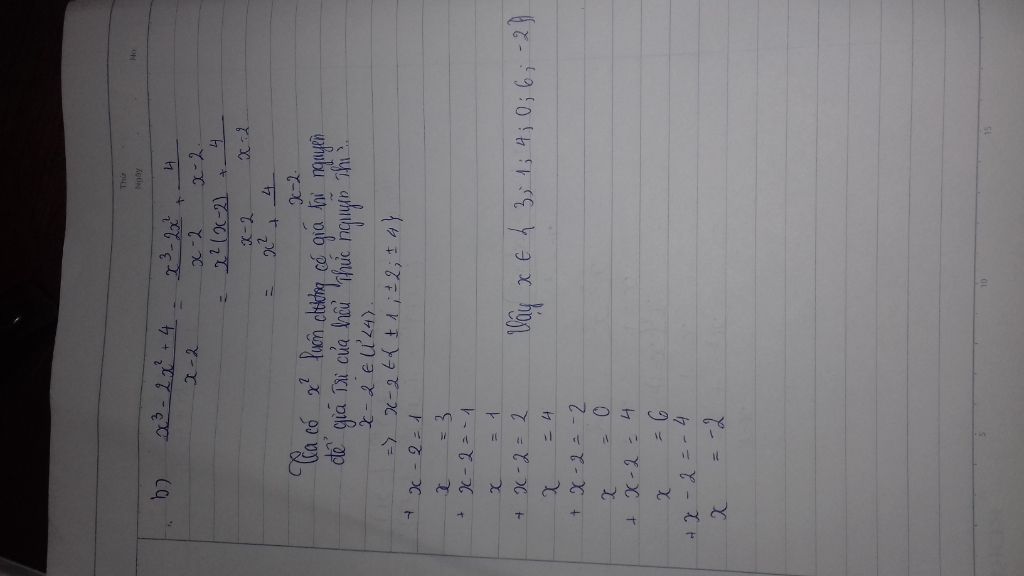 Thứ
Ngày
No.
b) x³ - 2x² + 4 / x - 2 = x³ - 2x² / x - 2 + 4 / x - 2
= x² (x - 2) / x - 2 + 4 / x - 2
= x² + 4 / x - 2
Ta có x² luôn dương có giá trị nguyên
để giá trị của biểu thức nguyên thì:
x - 2 ∈ Ư<4>
=> x - 2 ∈ { ± 1 ; ± 2 ; ± 4 }
+ x - 2 = 1
x = 3
+ x - 2 = -1
x = 1
+ x - 2 = 2
x = 4
+ x - 2 = -2
x = 0
+ x - 2 = 4
x = 6
+ x - 2 = -4
x = -2
Vậy x ∈ { 3 ; 1 ; 4 ; 0 ; 6 ; -2 }
5
10
15